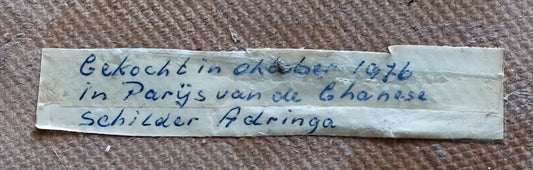 Gekocht in oktober 1976
in Parijs van de Ghanese
Schilder Adringa